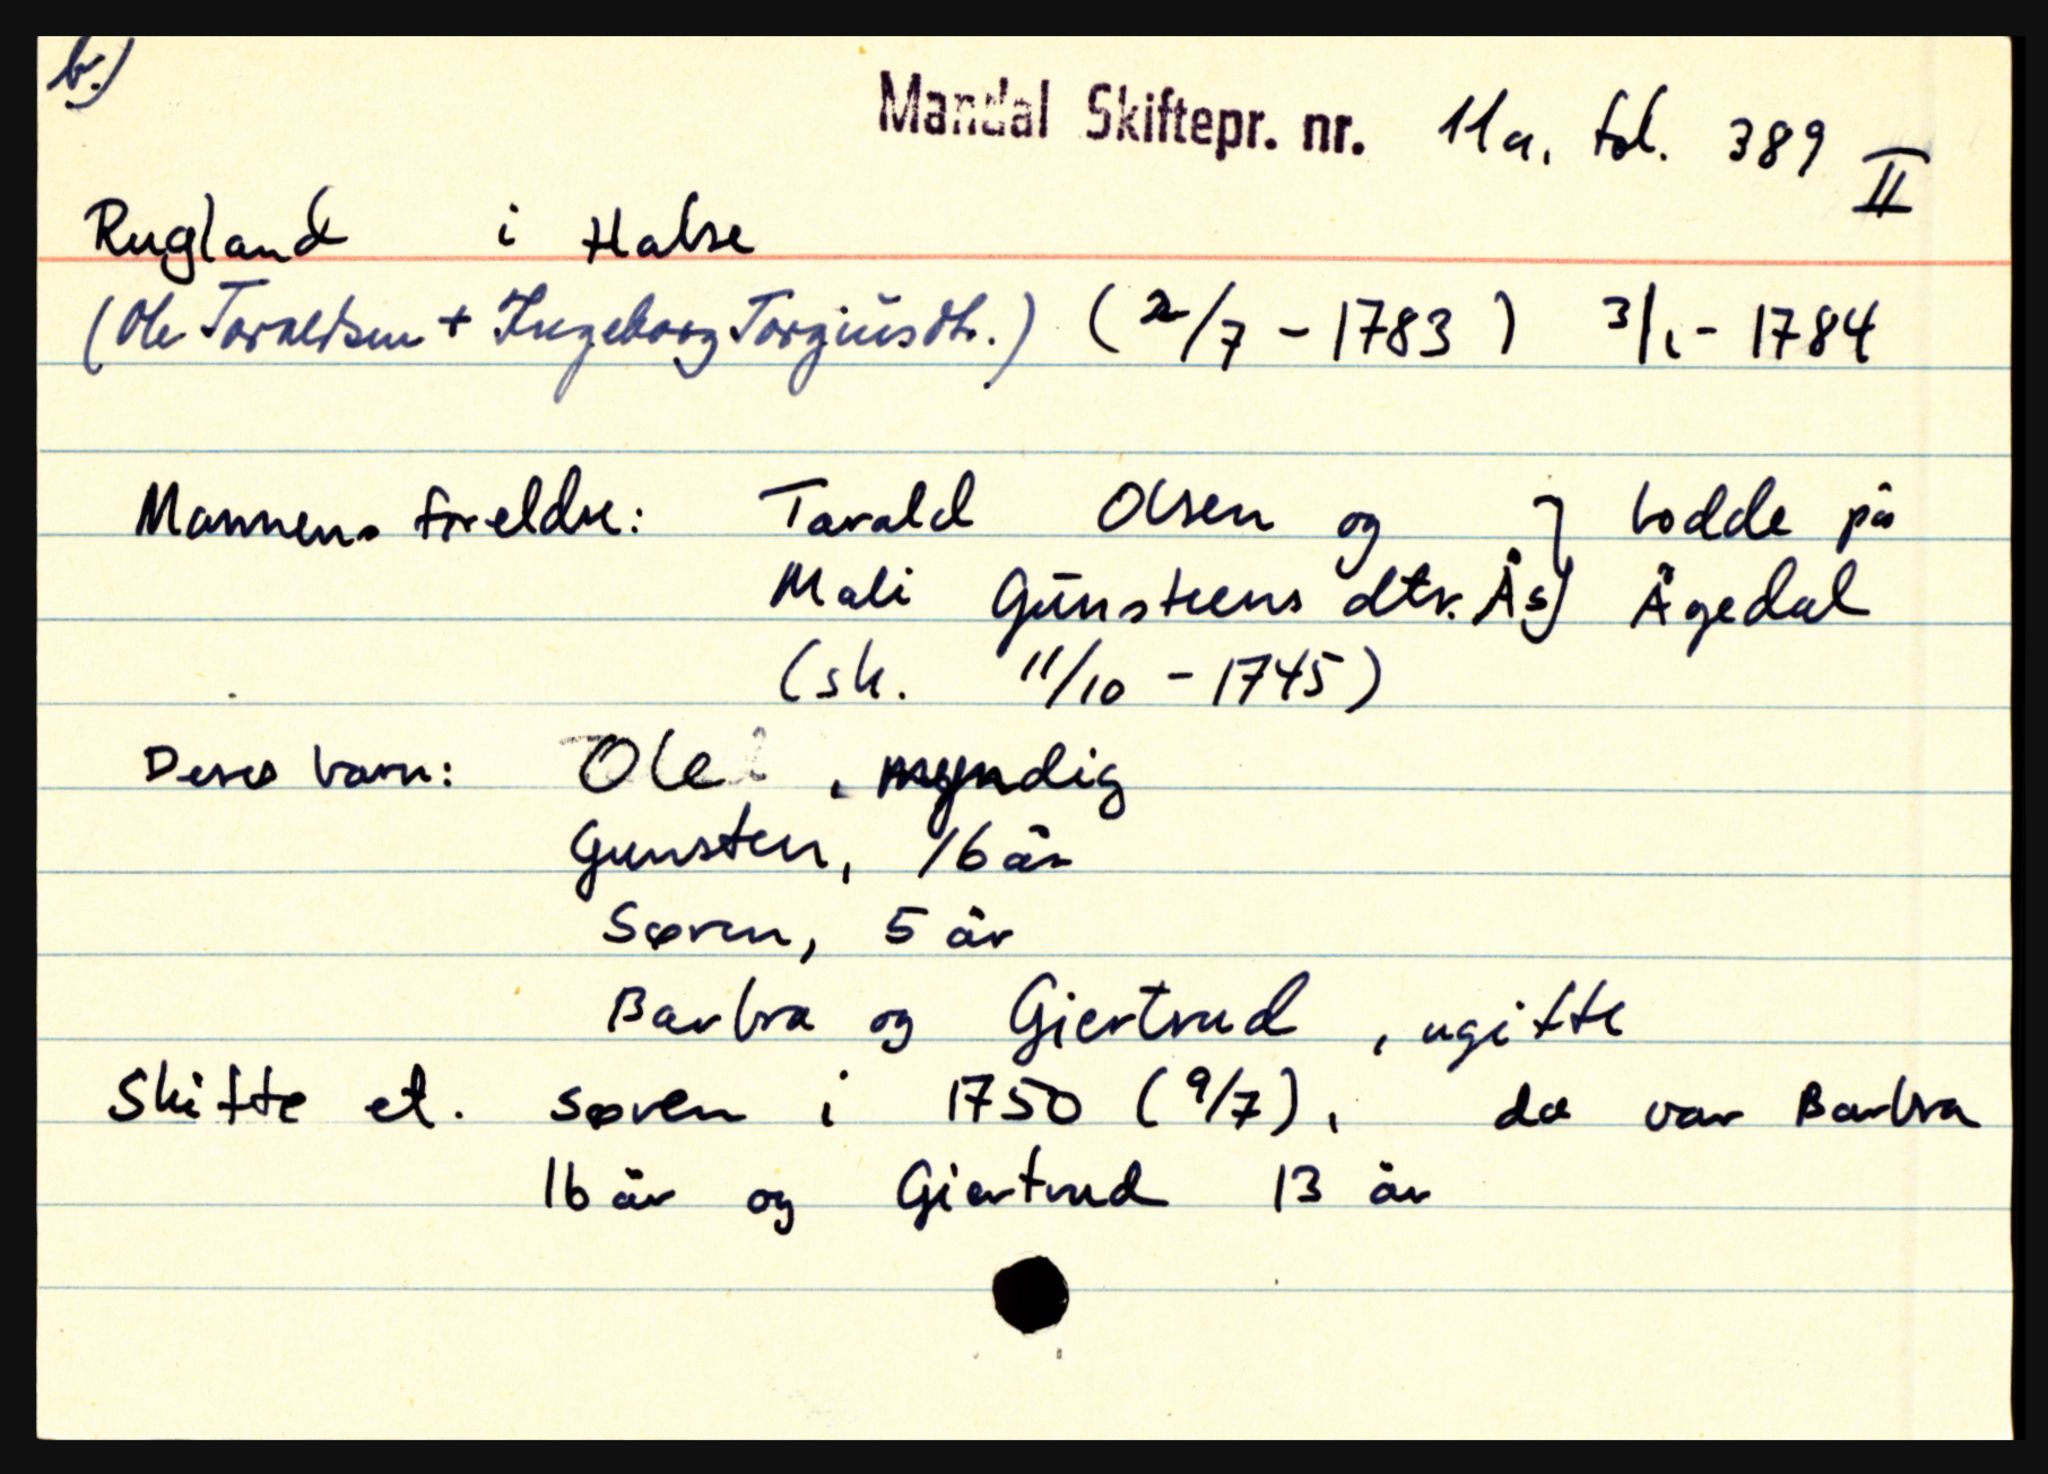 b.)
Mandal Skiftepr. nr. 11a, fol. 389 II
Rugland i Halse
(Ole Taraldsen + Ingeborg Torgiusdtr.) (2/7 - 1783) 3/1 - 1784
Mannens foreldre: Tarald Olsen og } bodde på
Mali Gūnsteens dtr. Ås } Ågedal
(sk. 11/10 - 1745)
Deres barn: Ole, myndig
Gunsten, 16 år
Søren, 5 år
Barbra og Giertrud, ugifte
Skifte et. Søren i 1750 (9/7), da var Barbra
16 år og Giertrud 13 år